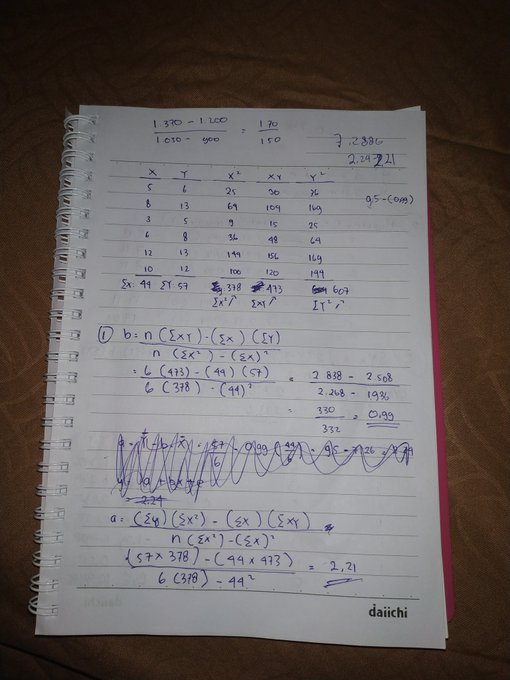 1.370 - 1.200 = 170
1.030 - 900 150
7.2886
2,24 2,21
X Y X² XY Y²
5 6 25 30 36
9,5-(0,99)
8 13 64 104 169
3 5 9 15 25
6 8 36 48 64
12 13 144 156 169
10 12 100 120 144
Σx: 44 ΣY 57 378 473 607
Σx² ΣXY ΣY²
① b = n (ΣXY) - (Σx) (ΣY)
n (Σx²) - (Σx)²
= 6 (473) - (44) (57) = 2.838 - 2.508
6 (378) - (44)² 2.268 - 1936
= 330 = 0,99
332
2,24
a = (Σy) (Σx²) - (Σx) (ΣXY)
n (Σx²) - (Σx)²
(57 x 378) - (44 x 473) = 2,21
6 (378) - 44²
daiichi